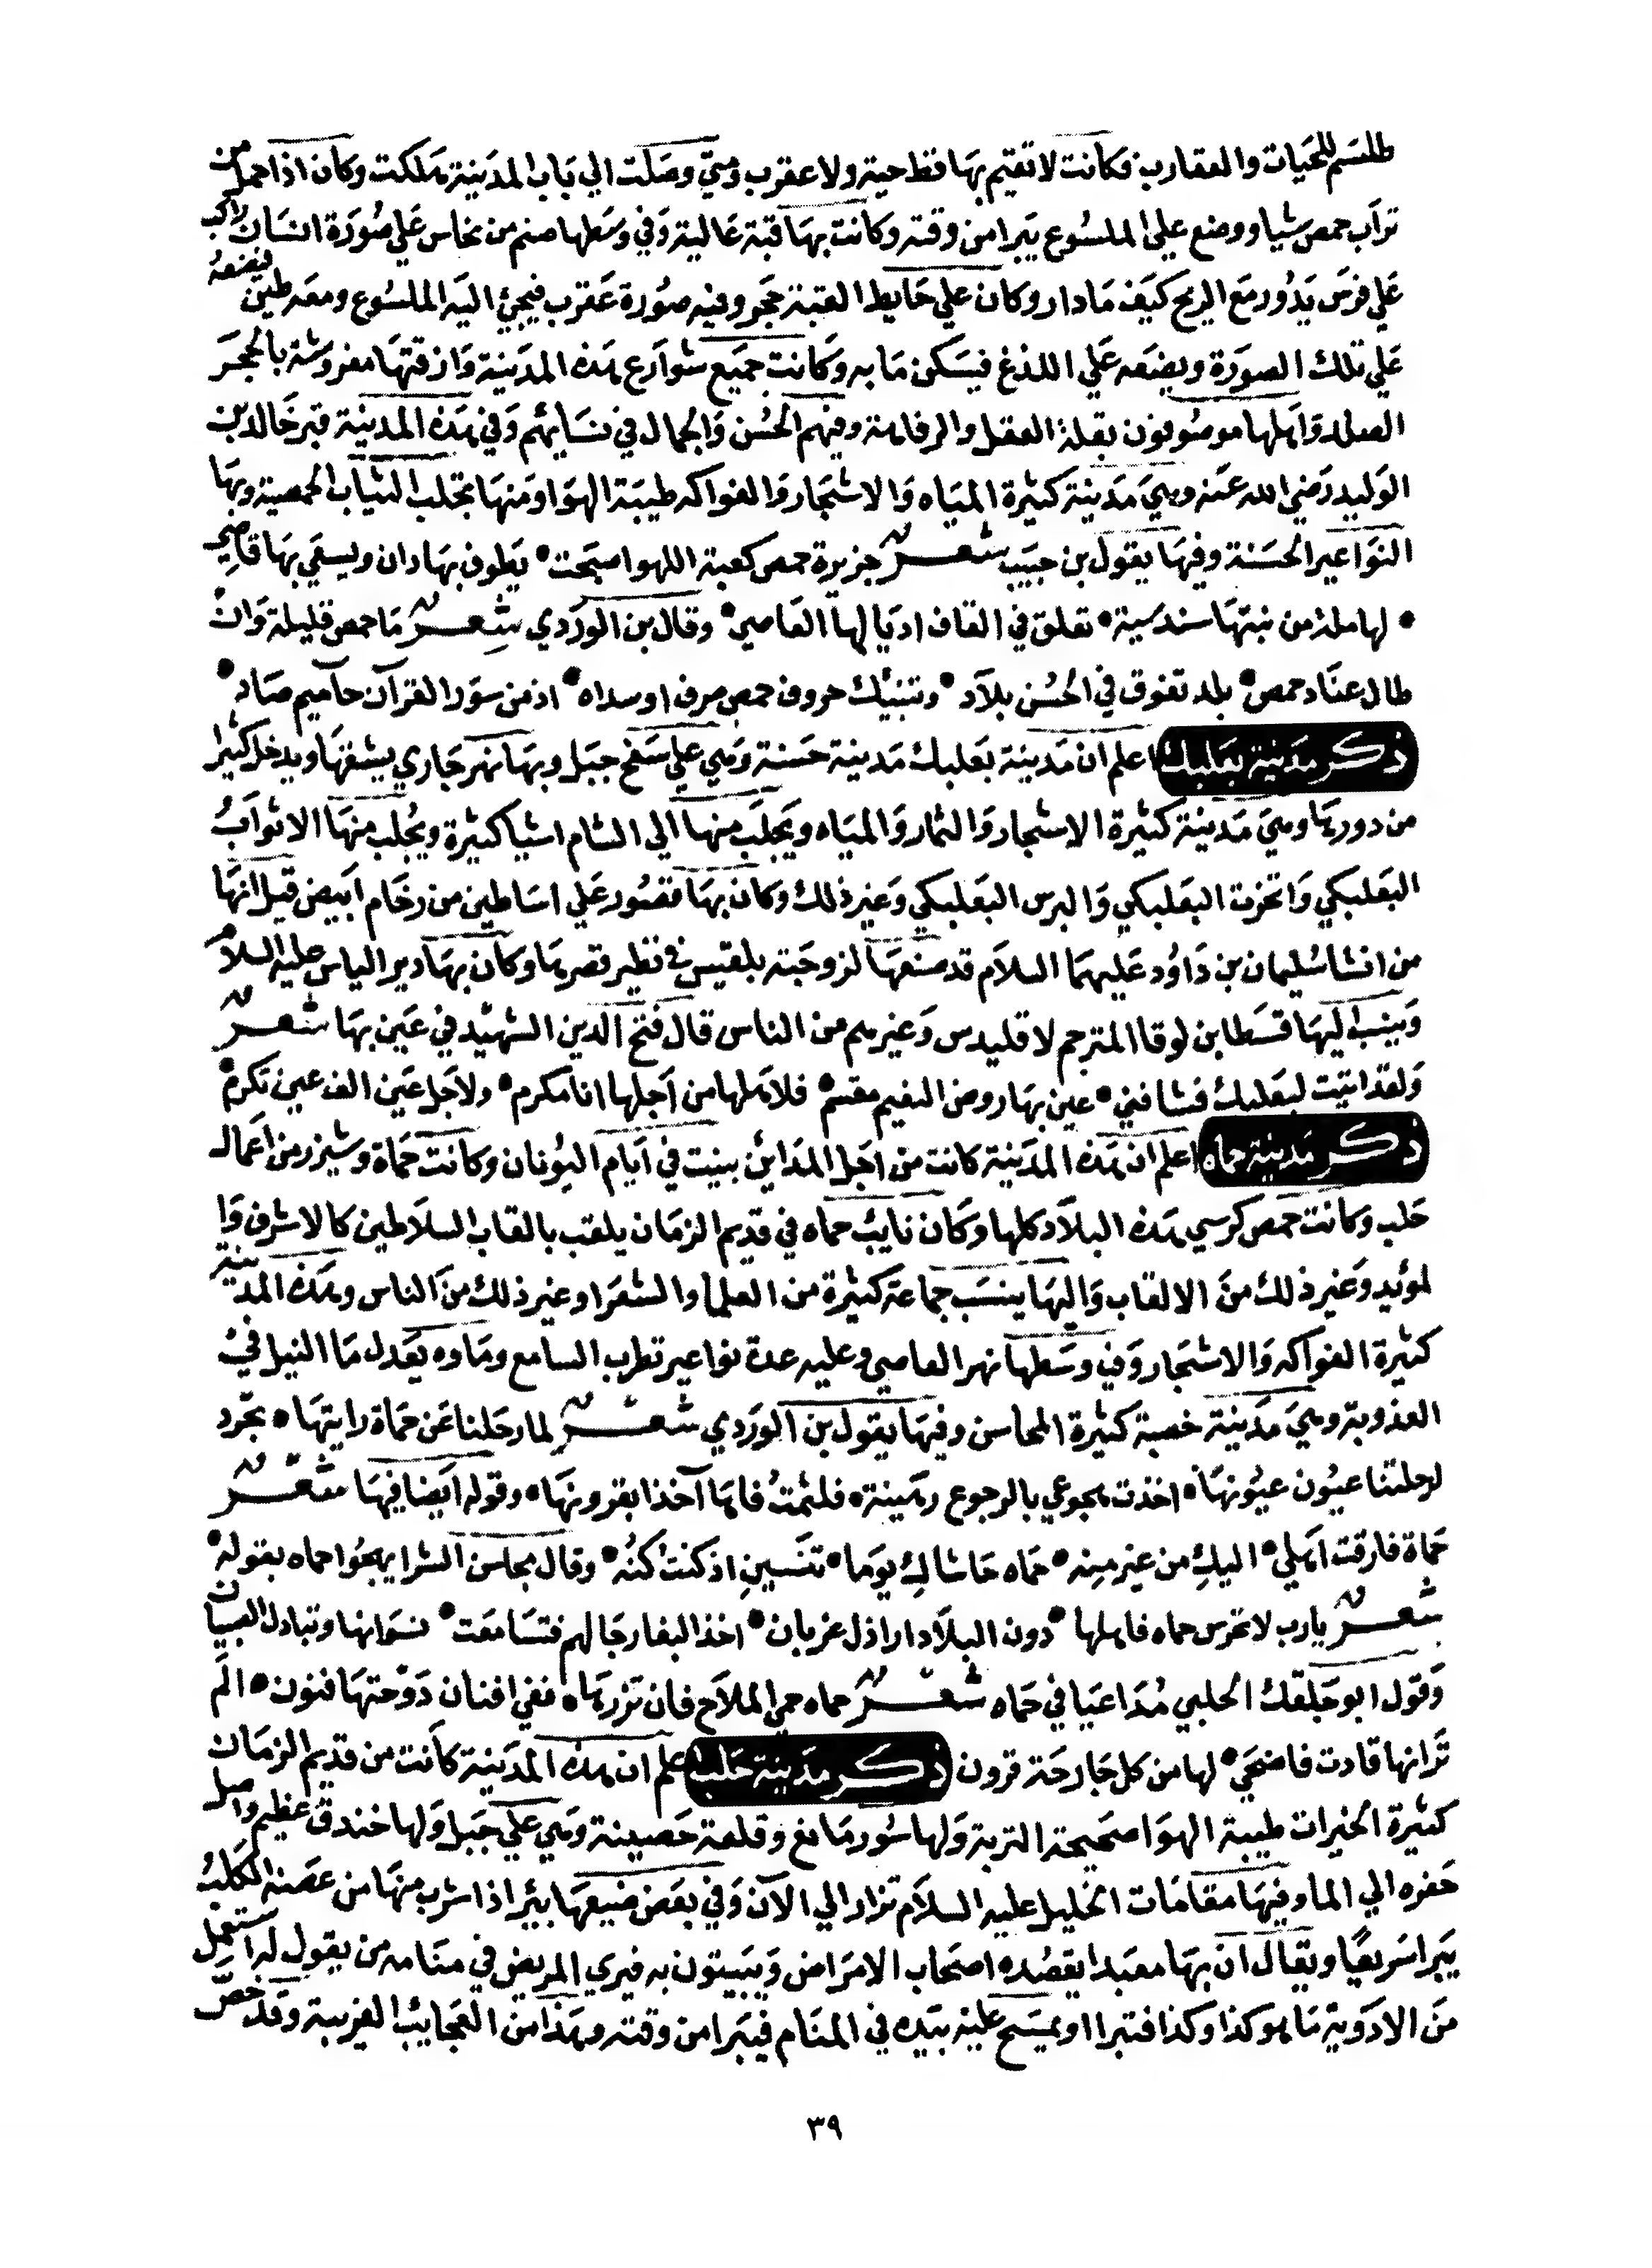 طلسم للحيات والعقارب فكانت لا تقيم بها قط حية ولا عقرب ومتي وصلت الي باب المدينة هلكت وكان اذا حمل من
تراب حمص شيا ووضع علي الملسوع يبرا من وقته وكانت بها قبة عالية وفي وسطها صنم من نحاس علي صورة انسان راكب
علي فرس يدور مع الريح كيف ما دار وكان علي حايط القبة حجر وفيه صورة عقرب فيجئ اليه الملسوع ومعه طين فيضعه
علي تلك الصورة ويضعه علي اللدغ فيسكن ما به وكانت جميع شوارع هذه المدينة وازقتها مفروشة بالحجر
الصلد واهلها موصوفون بقلة العقل والرفاهة وفيهم الحسن والجمال في نسايهم وفي هذه المدينة قبر خالد بن
الوليد رضي الله عنه وهي مدينة كثيرة المياه والاشجار والفواكه طيبة الهوا ومنها تجلب الثياب الحمصية وبها
النواعير الحسنة وفيها يقول بن حبيب شعر جزيرة حمص كعبة اللهو اصبحت • يطوف بها دان ويسقي بها قاصي
• لها حلة من نبتها سندسية • تعلق في القاف اذيالها العاصي • وقال بن الوردي شعر ما حمص قليلة وان
طال عناد حمص • بلد تفوق في الحسن بلاد • وتنبيك حروف حمص صرف او سداه • اذ من سور القرآن حاميم صاد •
ذكر مدينة بعلبك اعلم ان مدينة بعلبك مدينة حسنة وهي علي سفح جبل وبها نهر جاري يشقها ويدخل كثيرا
من دورها وهي مدينة كثيرة الاشجار والثمار والمياه ويجلب منها الي الشام اشيا كثيرة ويجلب منها الاثواب
البعلبكي والبرس البعلبكي وغير ذلك وكان بها قصور علي اساطين من رخام ابيض قيل انها
من انشا سليمان بن داود عليهما السلام قد صنعها لزوجته بلقيس في نظير قصرها وكان بها دير الياس عليه السلام
وينسب اليها قسطا بن لوقا المترجم لاقليدس وغيرهم من الناس قال فتح الدين الشهيد في عين بها شعر
ولقد اتيت لبعلبك فشاقني • عين بها روض النعيم مقسم • فلاهلها من اجلها انا مكرم • ولاجل عين الف عين تكرم
ذكر مدينة حماه اعلم ان هذه المدينة كانت من اجل المداين بنيت في ايام اليونان وكانت حماة وشيزر من اعمال
حلب وكانت حمص كرسي هذه البلاد كلها وكان نايب حماه في قديم الزمان يلقب بالقاب السلاطين كالاشرف وا
لمويد وغير ذلك من الالقاب واليها ينسب جماعة كثيرة من العلما والشعرا وغير ذلك من الناس وهذه المدينة
كثيرة الفواكه والاشجار وفي وسطها نهر العاصي وعليه عدة نواعير تطرب السامع وماوه يعدل ما النيل في
العذوبة وهي مدينة خصبة كثيرة المحاسن وفيها يقول بن الوردي شعر لما رحلنا عن حماة رايتها • تجود
لرحلتنا عيون عيونها • اخذت هجوعي بالرجوع رهينة • فلثمت فاها آخذا بقرونها • وقوله ايضا فيها شعر
حماة فارقت اهلي • اليك من غير منه • حماه حاشاك يوما • تنسين اذ كنت كنه • وقال محاسن الشوا يهجوا حماه بقوله •
شعر يارب لا تحرس حماه فاهلها • دون البلاد اراذل غربان • اخذ البغا رجالهم فتسامعت • نسوانها وتبادل الصبيان
وقول ابو جلقك الحلبي مداعبا في حماه شعر حماه حمي الملاح فان تزرها • ففي افنان دوحتها فنون • الم
تر انها قادت فاضحي • لها من كل جارحة قرون ذكر مدينة حلب اعلم ان هذه المدينة كانت من قديم الزمان
كثيرة الخيرات طيبة الهوا صحيحة التربة ولها سور مانع وقلعة حصينة وهي علي جبل ولها خندق عظيم واصل
حفره الي الما وفيها مقامات الخليل عليه السلام تزار الي الآن وفي بعض ضيعها بئرا اذا شرب منها من عضه الكلب
يبرا سريعا ويقال ان بها معبد ايقصده اصحاب الامراض ويبيتون به فيري المريض في منامه من يقول له استعمل
من الادوية ما هو كذا وكذا فتبرا او يمسح عليه بيده في المنام فيبرا من وقته وهذا من العجايب الغريبة وقد خص
٣٩